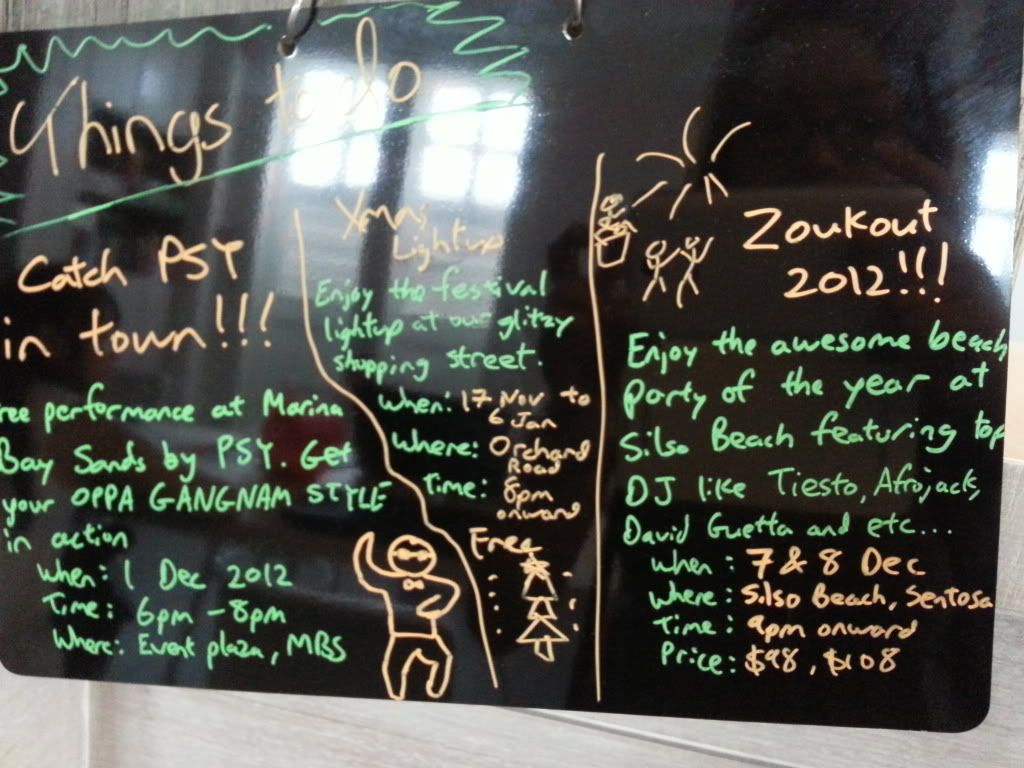 Things to do
Catch PSY
in town!!!
ree performance at Marina
Bay Sands by PSY. Get
your OPPA GANGNAM STYLE
in action
When: 1 Dec 2012
Time: 6pm - 8pm
Where: Event plaza, MBS
Xmas
Lightup
Enjoy the festival
lightup at our glitzy
shopping street.
When: 17 Nov to
6 Jan
Where: Orchard
Road
Time: 8pm
onward
Free
Zoukout
2012!!!
Enjoy the awesome beach
Party of the year at
Silso Beach featuring top
DJ like Tiesto, Afrojack,
David Guetta and etc...
When: 7 & 8 Dec
Where: Silso Beach, Sentosa
Time: 9pm onward
Price: $98, $108